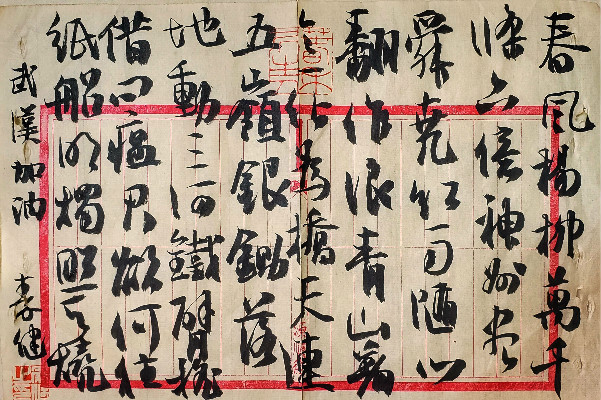 春風楊柳萬千
條六億神州盡
舜堯紅雨隨心
翻作浪青山著
意化為橋天連
五嶺銀鋤落
地動三河鐵臂搖
借問瘟君欲何往
紙船明燭照天燒
武漢加油